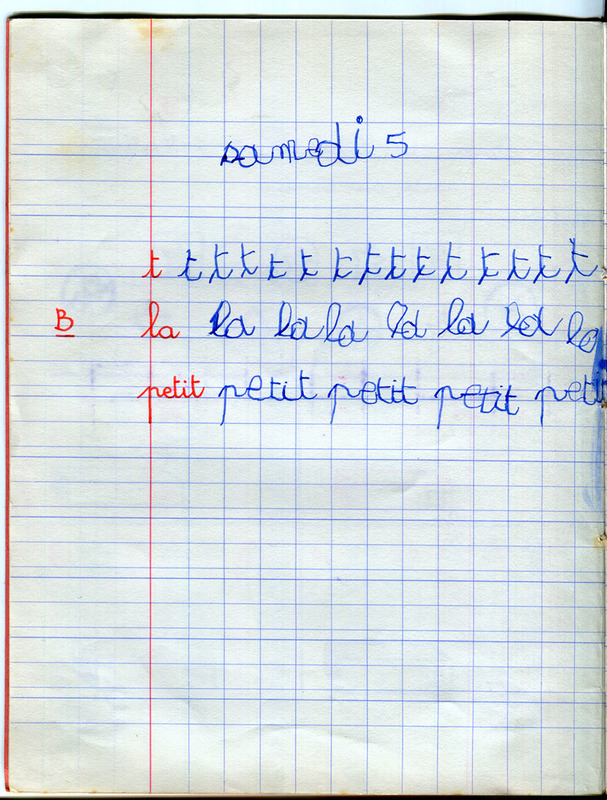 samedi 5
t t t t t t t t t t t t t t t
B la la la la la la la la
petit petit petit petit peti